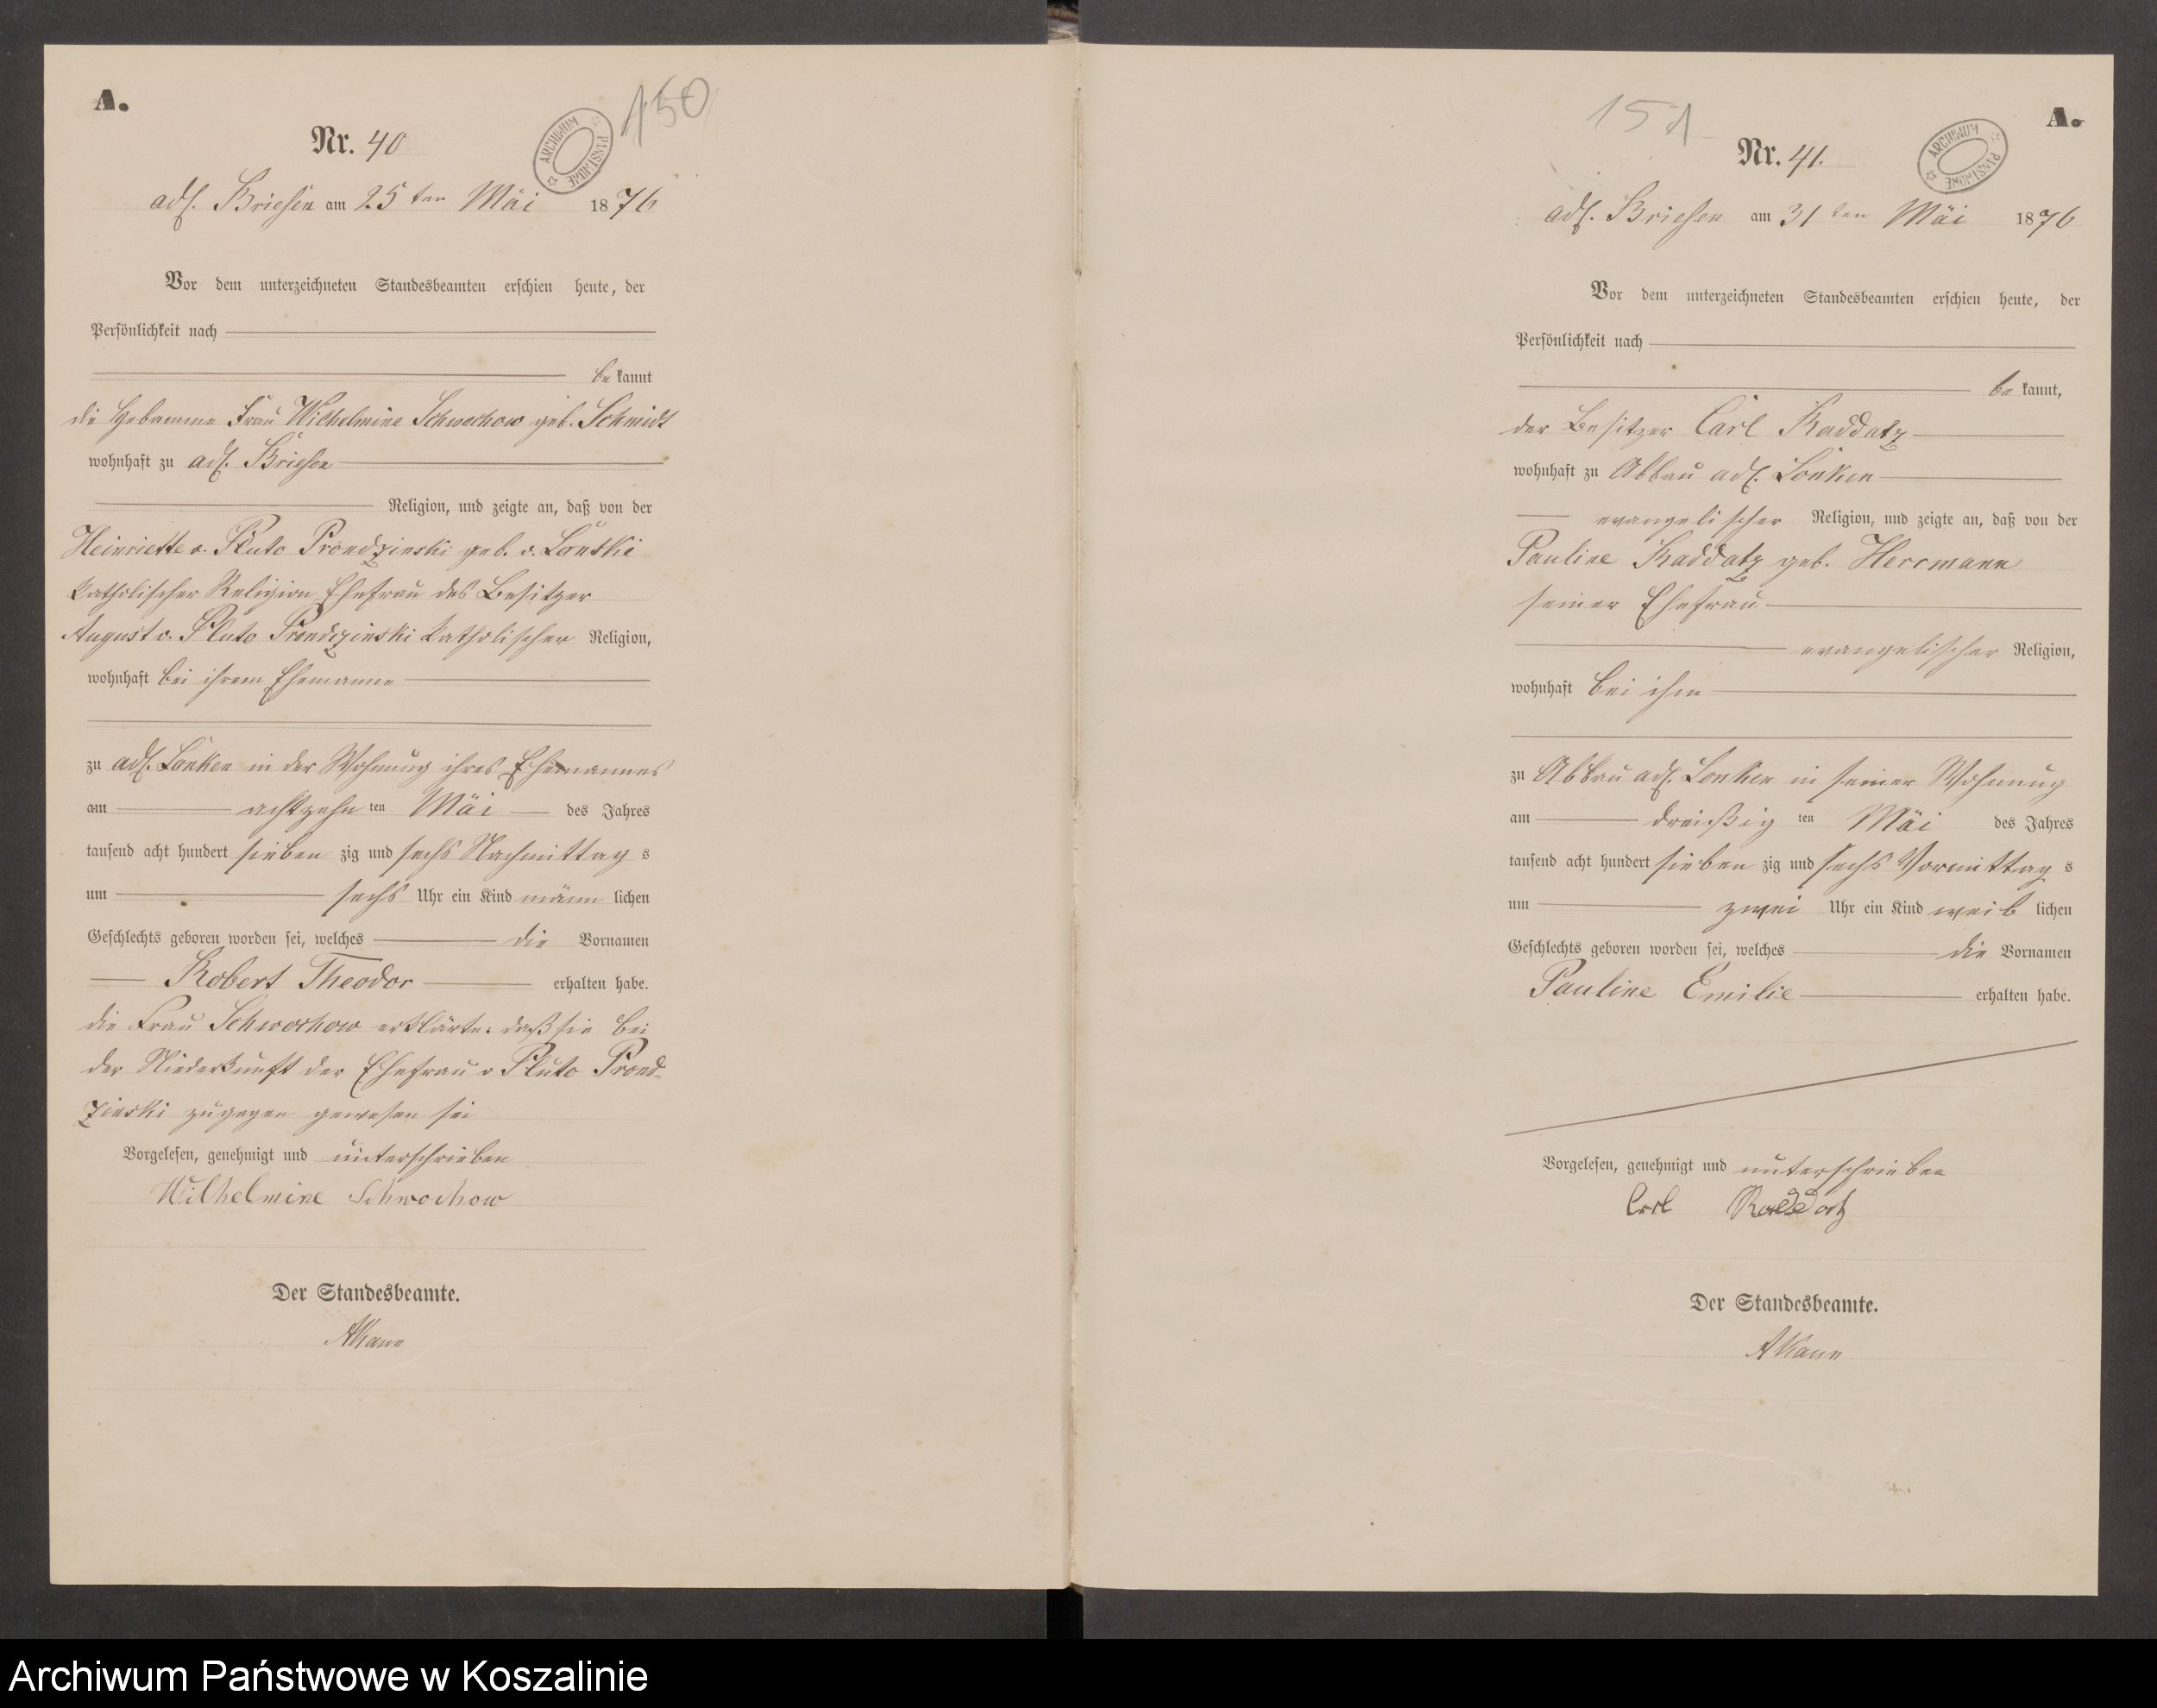 A.
150
Nr. 40
ARCHIWUM PAŃSTWOWE
adl. Briesen am 25 ten Mai 1876
Vor dem unterzeichneten Standesbeamten erschien heute, der
Persönlichkeit nach
be kannt
die Hebamme Frau Wilhelmine Schwochow geb. Schmidt
wohnhaft zu adl. Briesen
Religion, und zeigte an, daß von der
Heinriette v. Pluto Prondzinski geb. v. Lonski
katholischer Religion Ehefrau des Besitzer
August v. Pluto Prondzinski katholischer Religion,
wohnhaft bei ihrem Ehemanne
zu adl. Lonken in der Wohnung ihres Ehemannes
am achtzehn ten Mai des Jahres
tausend acht hundert sieben zig und sechs Nachmittag s
um sechs Uhr ein Kind männ lichen
Geschlechts geboren worden sei, welches die Vornamen
Robert Theodor erhalten habe.
die Frau Schwochow erklärte: daß sie bei
der Niederkunft der Ehefrau v Pluto Prond-
zinski zugegen gewesen sei
Vorgelesen, genehmigt und unterschrieben
Wilhelmine Schwochow
Der Standesbeamte.
A Kann
151
A.
Nr. 41.
ARCHIWUM PAŃSTWOWE
adl. Briesen am 31 ten Mai 1876
Vor dem unterzeichneten Standesbeamten erschien heute, der
Persönlichkeit nach
be kannt,
der Besitzer Carl Raddatz
wohnhaft zu Abbau adl. Lonken
evangelischer Religion, und zeigte an, daß von der
Pauline Raddatz geb. Herrmann
seiner Ehefrau
evangelischer Religion,
wohnhaft bei ihm
zu Abbau adl. Lonken in seiner Wohnung
am dreißig ten Mai des Jahres
tausend acht hundert sieben zig und sechs Vormittag s
um zwei Uhr ein Kind weib lichen
Geschlechts geboren worden sei, welches die Vornamen
Pauline Emilie erhalten habe.
Vorgelesen, genehmigt und unterschrieben
Carl Raddatz
Der Standesbeamte.
A Kann
Archiwum Państwowe w Koszalinie